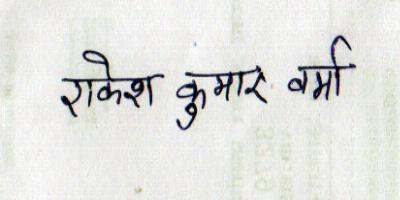 राकेश कुमार वर्मा